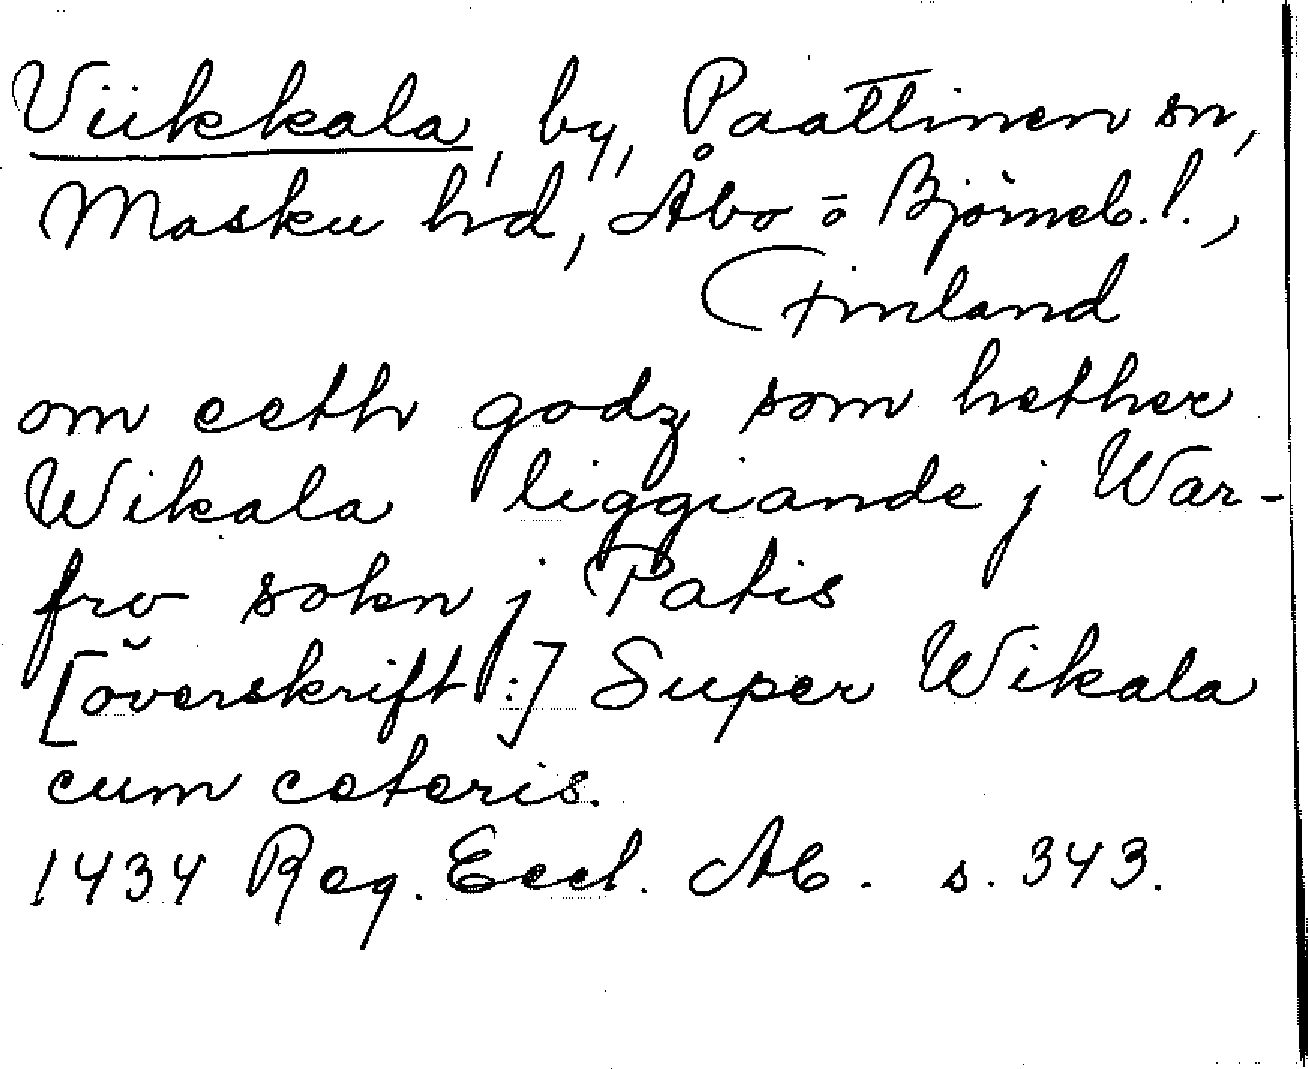 Viikkala, by, Paattinen sn,
Masku hd, Åbo o Björneb. l.,
Finland
om eeth godz som hether
Wikala liggiande j War-
fro sokn j Patis
[överskrift:] Super Wikala
cum ceteris.
1434 Reg. Eccl. Ab. s. 343.